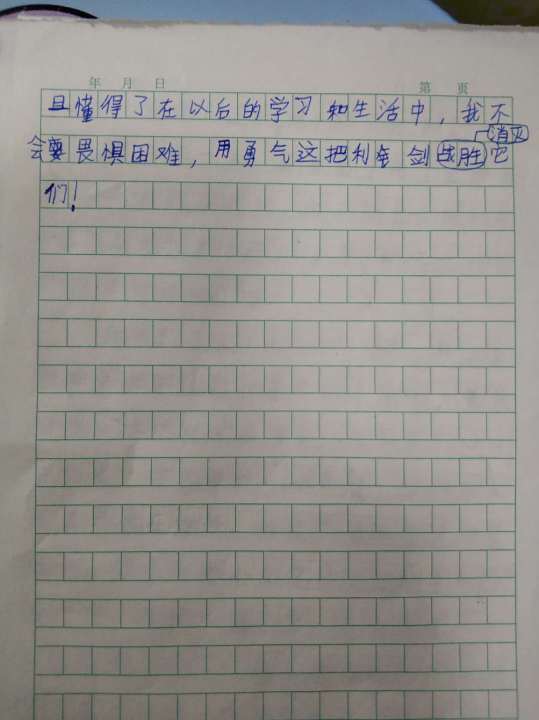 年 月 日 第 页
且懂得了在以后的学习和生活中，我不
消灭
会要畏惧困难，用勇气这把利剑战胜它
们！